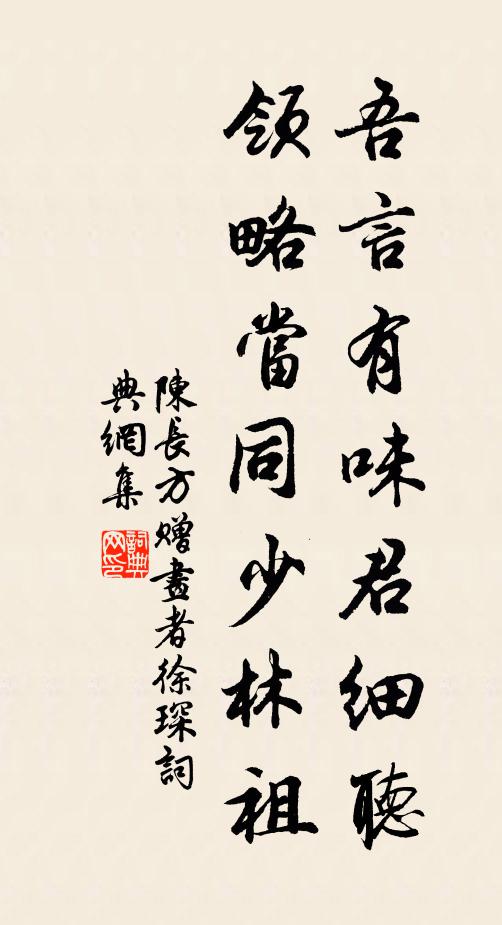 吾言有味君細聽
領略當同少林祖
陳長方贈畫者徐琛詞
典網集
詞典
网印